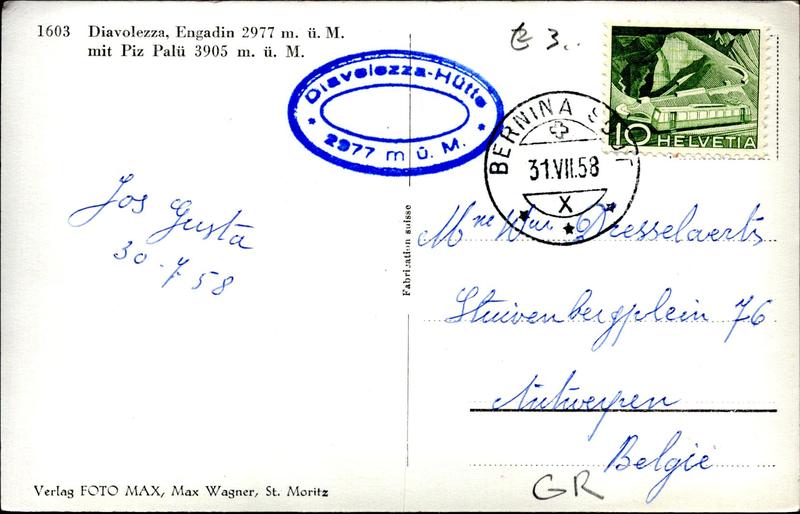 1603 Diavolezza, Engadin 2977 m. ü. M.
mit Piz Palü 3905 m. ü. M.
€ 3..
Diavolezza-Hütte
* 2977 m ü. M. *
BERNINA SUOT
31.VII.58
X
10 HELVETIA
Jos Gusta
30-7-58
Fabrication suisse
Mme Wwe Dresselaerts
Stuivenbergplein 76
Antwerpen
België
GR
Verlag FOTO MAX, Max Wagner, St. Moritz